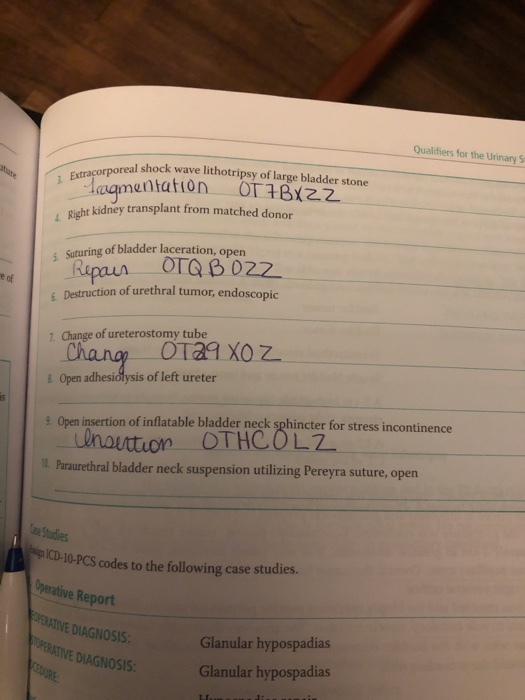 ature
e of
is
Qualifiers for the Urinary S
3. Extracorporeal shock wave lithotripsy of large bladder stone
fragmentation OT7BXZZ
4. Right kidney transplant from matched donor
5. Suturing of bladder laceration, open
Repair OTQB0ZZ
6. Destruction of urethral tumor, endoscopic
7. Change of ureterostomy tube
Change OT29X0Z
8. Open adhesiolysis of left ureter
9. Open insertion of inflatable bladder neck sphincter for stress incontinence
Insertion OTHC0LZ
10. Paraurethral bladder neck suspension utilizing Pereyra suture, open
Case Studies
ign ICD-10-PCS codes to the following case studies.
Operative Report
EOPERATIVE DIAGNOSIS: Glanular hypospadias
STOPERATIVE DIAGNOSIS: Glanular hypospadias
CEDURE: